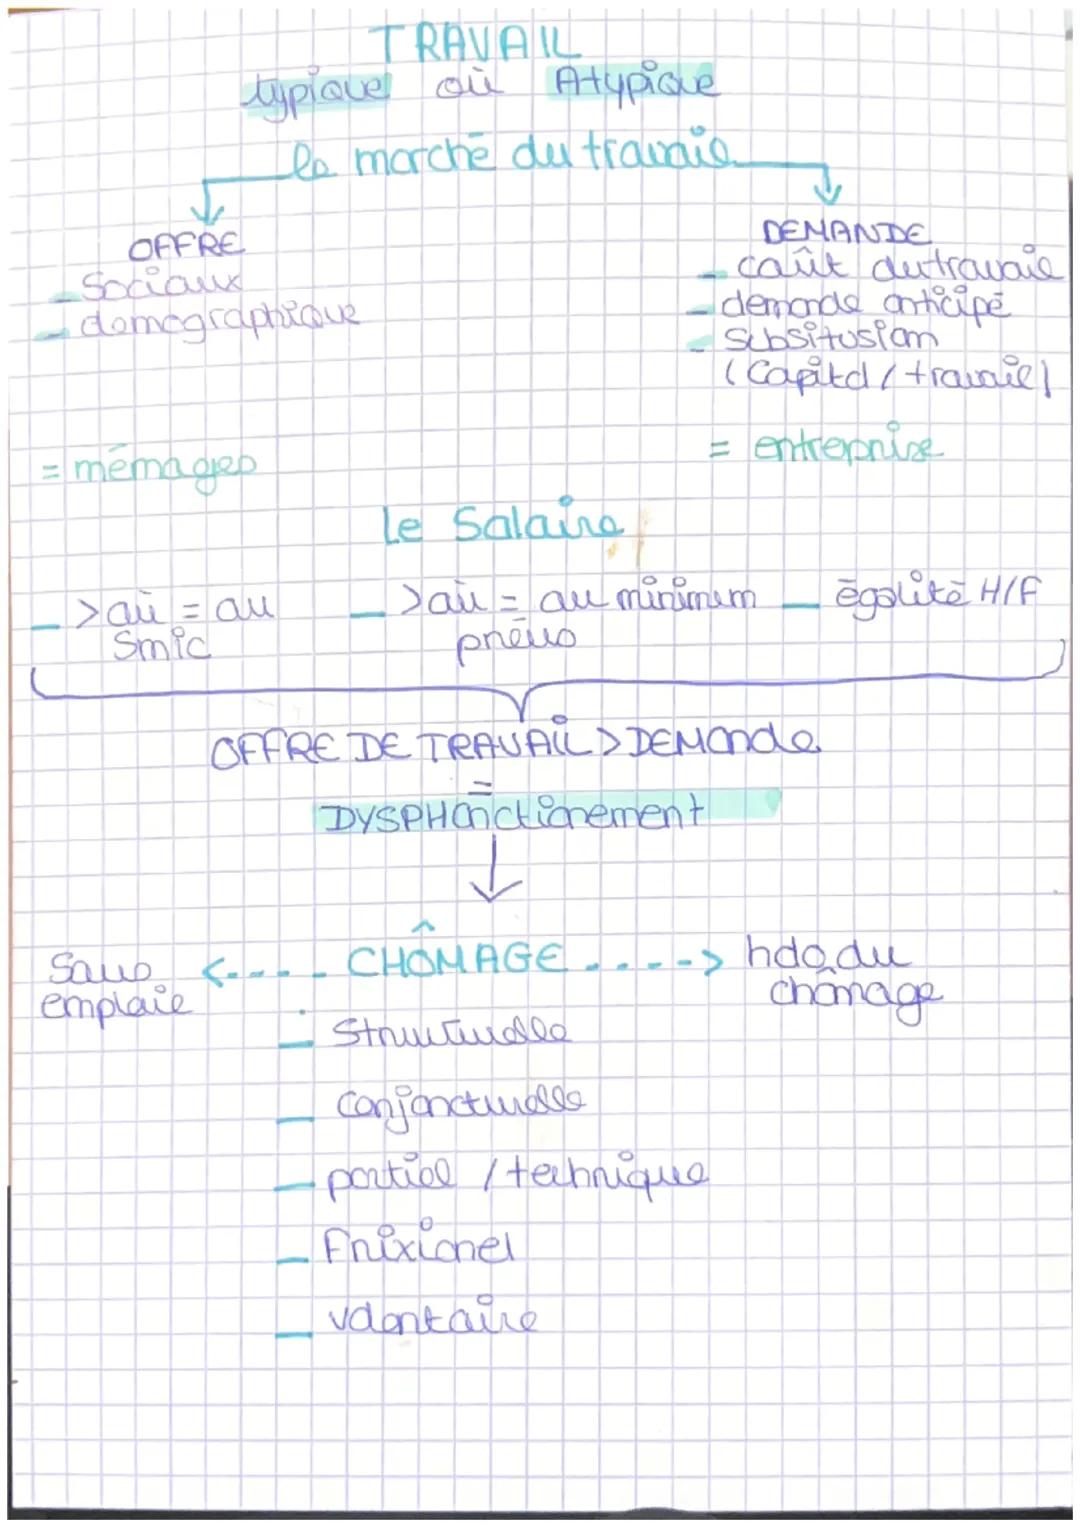 TRAVAIL
typique où Atypique
le marché du travail
OFFRE
DEMANDE
- Sociaux
- demographique
- coût du travail
- demande anticipé
- subsitusion
(Capital / travail)
= ménages
= entreprise
Le Salaire
- > où = au
Smic
- > où = au minimum
prévus
- égalité H/F
OFFRE DE TRAVAIL > DEMANDE
=
DYSPHONCTIONEMENT
Sans
emploie
<---- CHÔMAGE ---->
du
chômage
- Structurelle
- conjoncturelle
- partiel / technique
- Frixionel
- volontaire